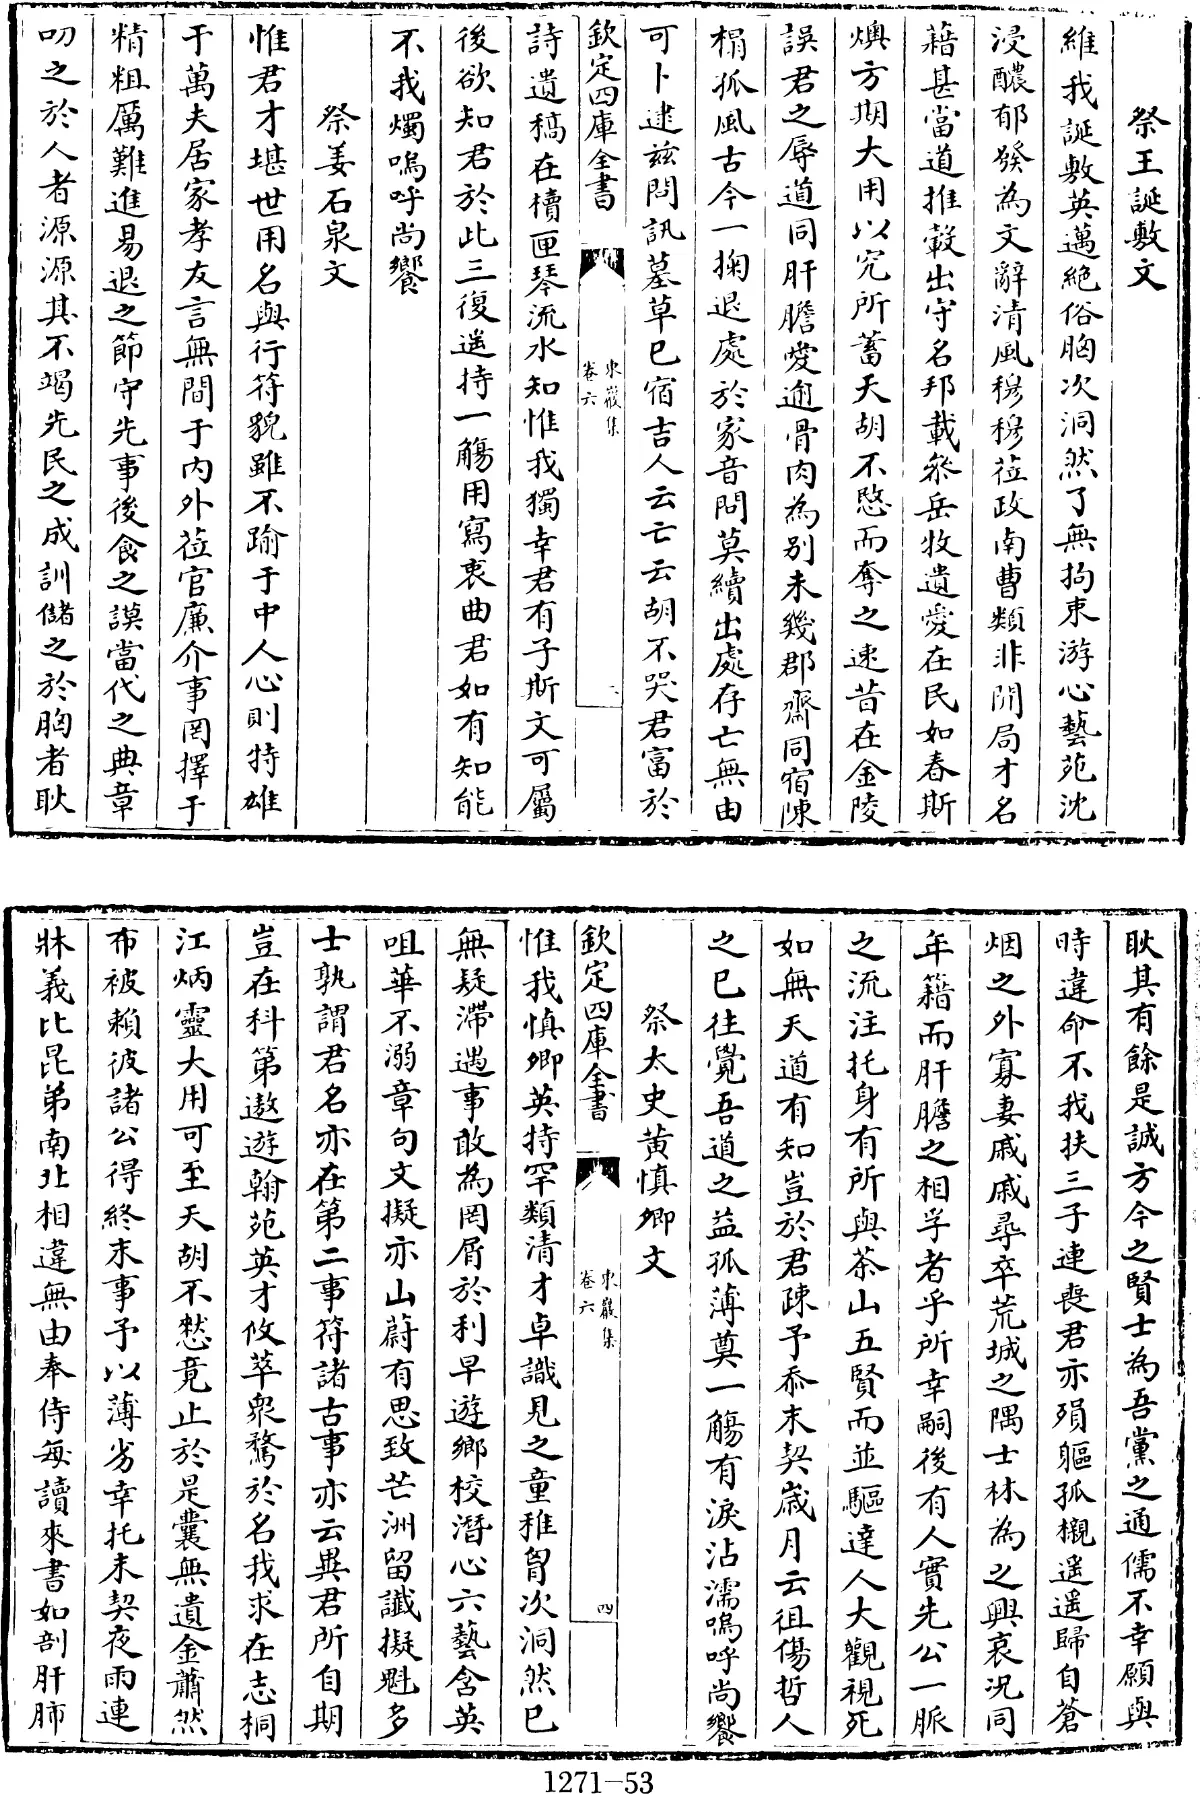 祭王誕敷文
維我誕敷英邁絶俗胸次洞然了無拘束游心藝苑沈
浸醲郁發為文辭清風穆穆莅政南曹類非閒局才名
藉甚當道推轂出守名邦載叅岳牧遺愛在民如春斯
燠方期大用以究所蓄天胡不愍而奪之速昔在金陵
誤君之辱道同肝膽愛逾骨肉為别未幾郡齋同宿陳
榻孤風古今一掬退處於家音問莫續出處存亡無由
可卜逮兹問訊墓草已宿吉人云亡云胡不哭君富於
欽定四庫全書
東巖集
卷六
三
詩遺稿在櫝匣琴流水知惟我獨幸君有子斯文可屬
後欲知君於此三復遥持一觴用寫衷曲君如有知能
不我燭嗚呼尚饗
祭姜石泉文
惟君才堪世用名與行符貌雖不踰于中人心則特雄
于萬夫居家孝友言無間于内外莅官廉介事罔擇于
精粗厲難進易退之節守先事後食之謨當代之典章
叨之於人者源源其不竭先民之成訓儲之於胸者耿
耿其有餘是誠方今之賢士為吾黨之通儒不幸願與
時違命不我扶三子連喪君亦殞軀孤櫬遥遥歸自蒼
烟之外寡妻戚戚尋卒荒城之隅士林為之興哀况同
年籍而肝膽之相孚者乎所幸嗣後有人實先公一脈
之流注托身有所與茶山五賢而並驅達人大觀視死
如無天道有知豈於君疎予忝末契歲月云徂傷哲人
之已往覺吾道之益孤薄奠一觴有淚沾濡嗚呼尚饗
祭太史黄慎卿文
欽定四庫全書
東巖集
卷六
四
惟我慎卿英持罕類清才卓識見之童稚胷次洞然已
無疑滯遇事敢為罔屑於利早遊鄉校潛心六藝含英
咀華不溺章句文擬亦山蔚有思致芒洲留讖擬魁多
士孰謂君名亦在第二事符諸古事亦云異君所自期
豈在科第遨遊翰苑英才攸萃衆騖於名我求在志桐
江炳靈大用可至天胡不憖竟止於是囊無遺金蕭然
布被賴彼諸公得終末事予以薄劣幸托末契夜雨連
牀義比昆弟南北相違無由奉侍每讀來書如剖肝肺
1271-53